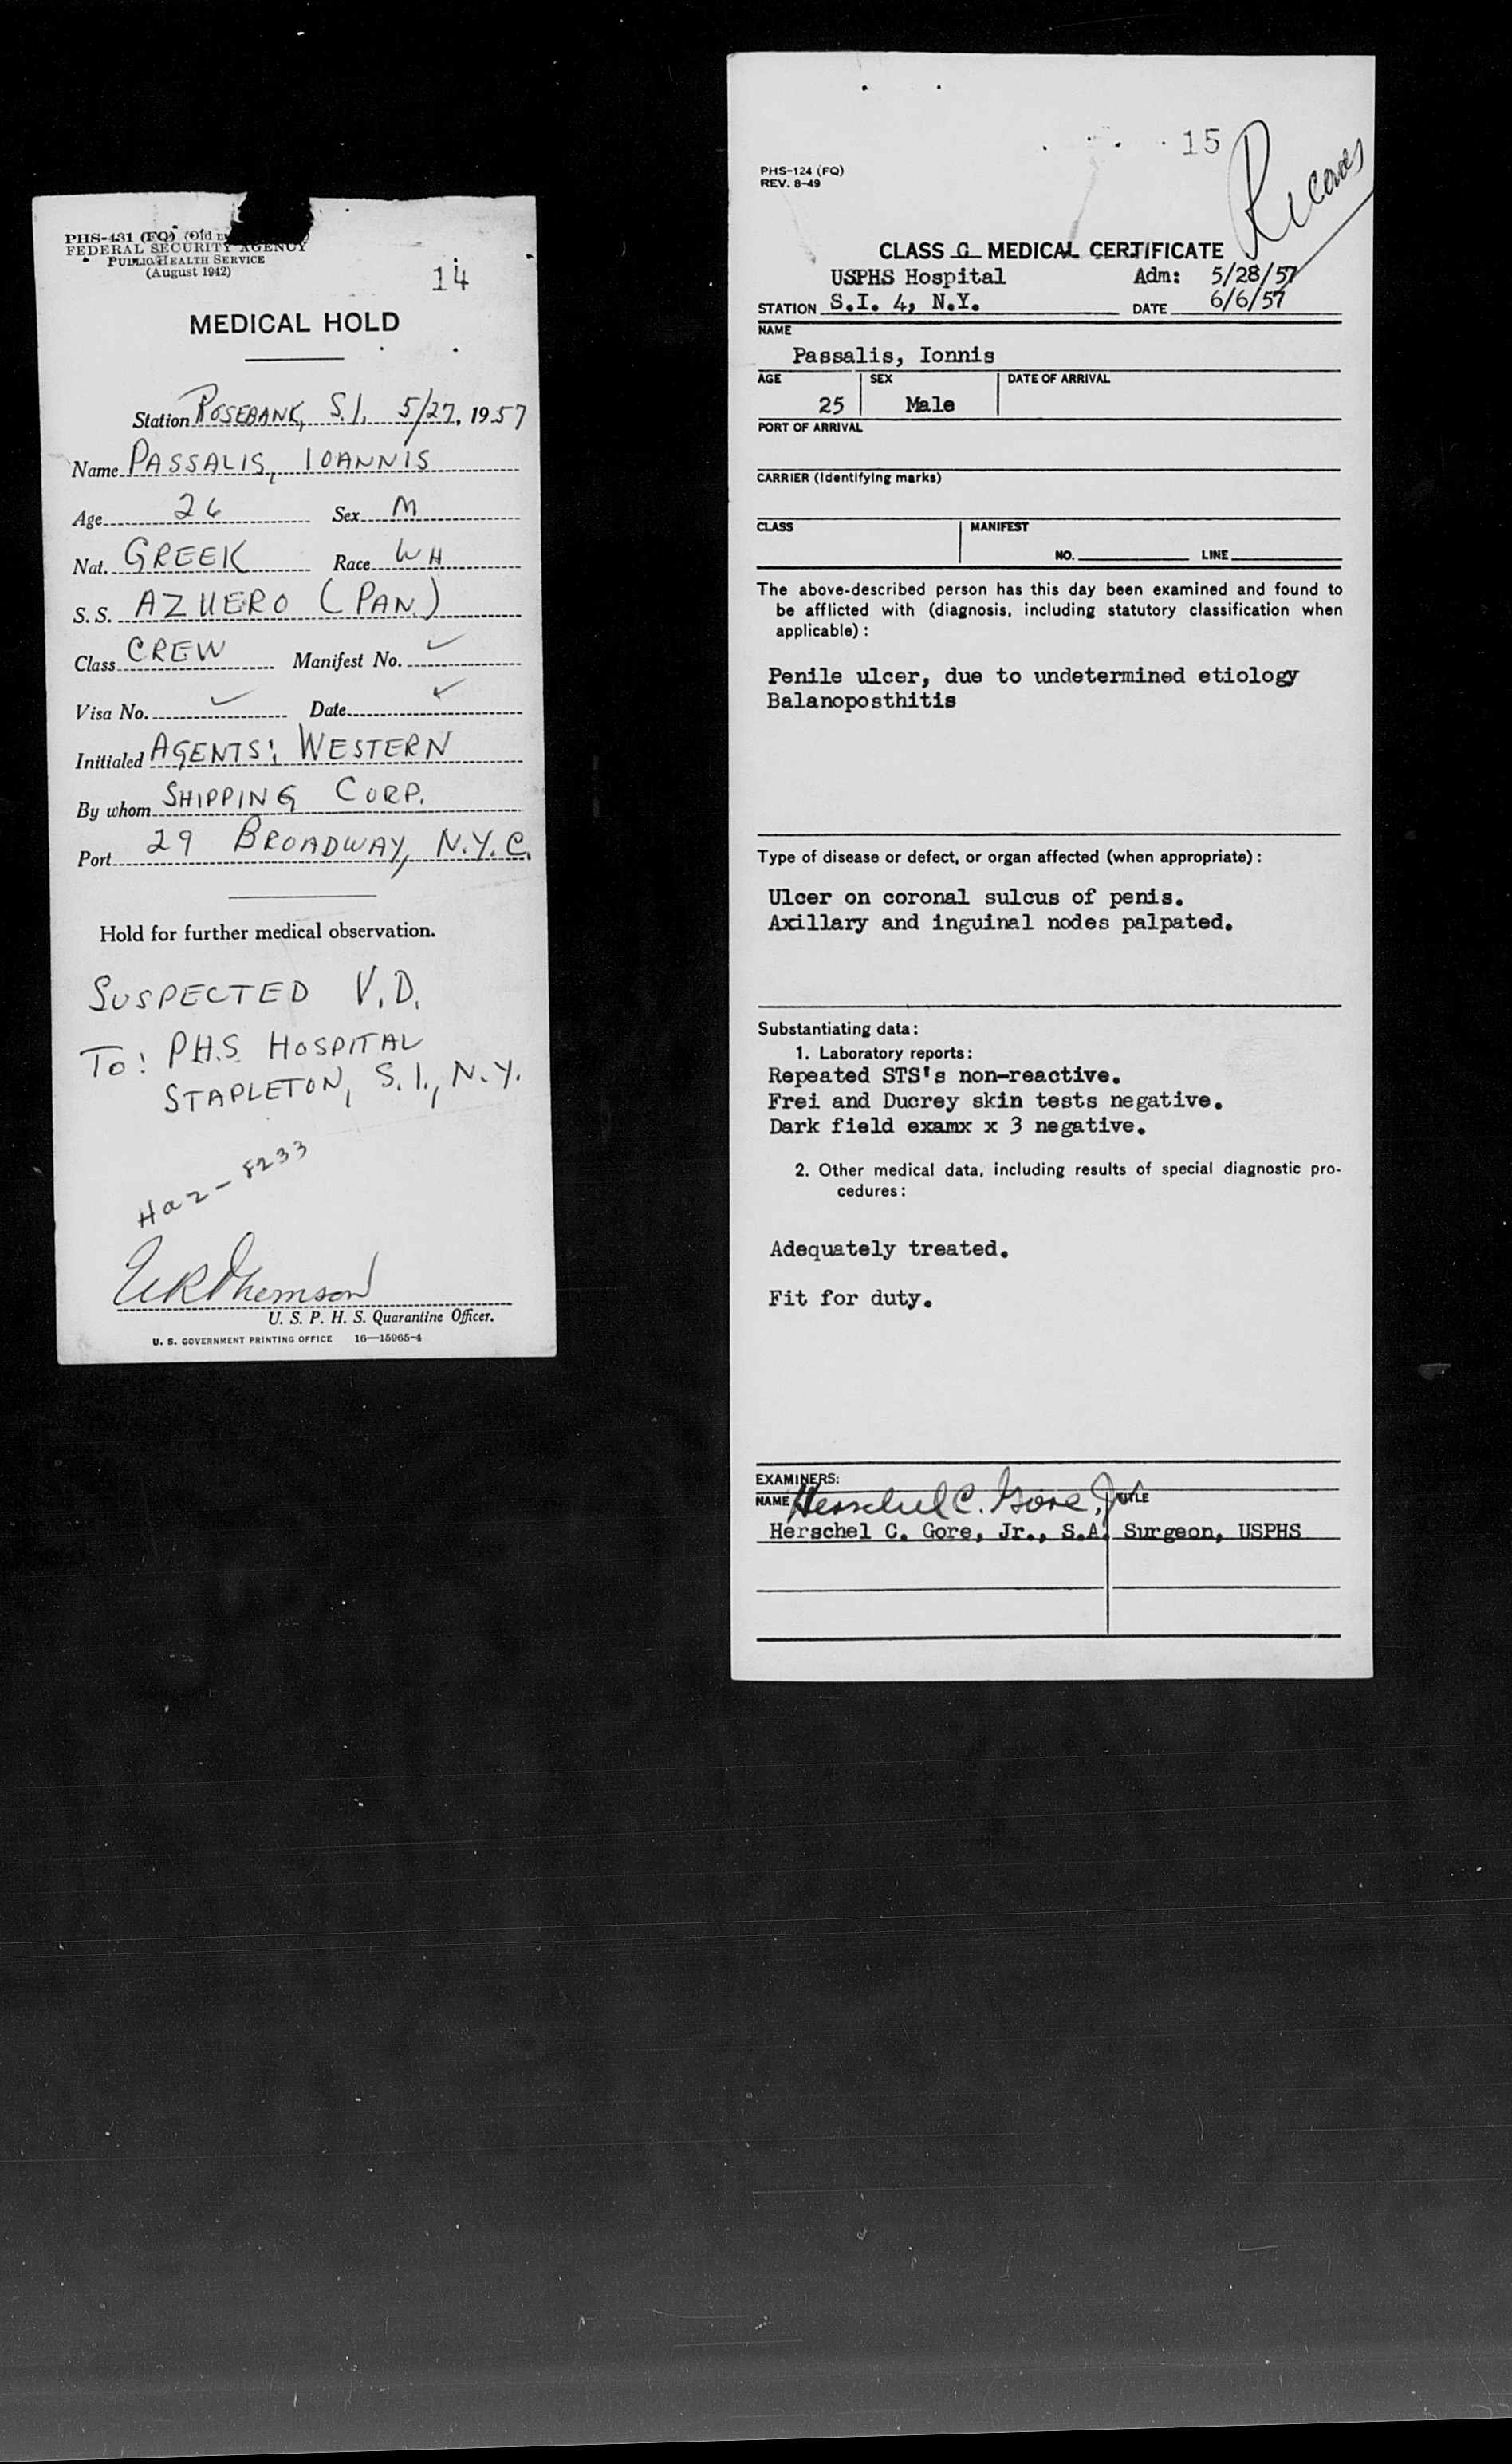 PHS-431 (FQ) (Old
FEDERAL SECURITY AGENCY
PUBLIC HEALTH SERVICE
(August 1942)
14
MEDICAL HOLD
Station ROSEBANK, S.I. 5/27, 1957
Name PASSALIS, IOANNIS
Age 26 Sex M
Nat. GREEK Race WH
S. S. AZUERO (PAN.)
Class CREW Manifest No. ✓
Visa No. ✓ Date ✓
Initialed AGENTS: WESTERN
By whom SHIPPING CORP.
Port 29 BROADWAY, N.Y.C.
Hold for further medical observation.
SUSPECTED V.D.
TO: P.H.S. HOSPITAL
STAPLETON, S.I., N.Y.
Ha 2-8233
U. S. P. H. S. Quarantine Officer.
U. S. GOVERNMENT PRINTING OFFICE 16—15965-4
15
Records
PHS-124 (FQ)
REV. 8-49
CLASS C MEDICAL CERTIFICATE
USPHS Hospital Adm: 5/28/57
STATION S.I. 4, N.Y. DATE 6/6/57
NAME
Passalis, Ionnis
AGE SEX DATE OF ARRIVAL
25 Male
PORT OF ARRIVAL
CARRIER (Identifying marks)
CLASS MANIFEST
NO. LINE
The above-described person has this day been examined and found to
be afflicted with (diagnosis, including statutory classification when
applicable) :
Penile ulcer, due to undetermined etiology
Balanoposthitis
Type of disease or defect, or organ affected (when appropriate) :
Ulcer on coronal sulcus of penis.
Axillary and inguinal nodes palpated.
Substantiating data :
1. Laboratory reports :
Repeated STS's non-reactive.
Frei and Ducrey skin tests negative.
Dark field examx x 3 negative.
2. Other medical data, including results of special diagnostic pro-
cedures :
Adequately treated.
Fit for duty.
EXAMINERS:
NAME Herschel C. Gore, Jr. TITLE
Herschel C. Gore, Jr., S.A. Surgeon, USPHS